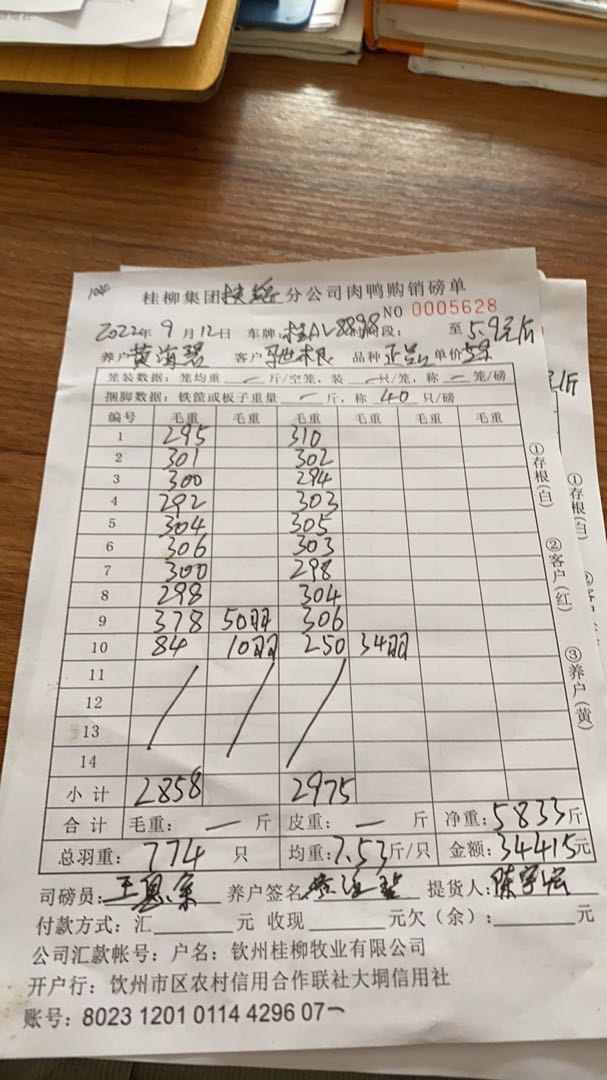 104
桂柳集团扶绥分公司肉鸭购销磅单
NO 0005628
2022年9月12日 车牌:桂AV8898 段: 至 5.9元/斤
养户黄海碧 客户 根 品种 正品 单价
笼装数据:笼均重 一 斤/空笼,装 一 只/笼,称 一 笼/磅
捆脚数据:铁篮或板子重量 一 斤,称 40 只/磅
编号 毛重 毛重 毛重 毛重 毛重 毛重
1 295 310
2 301 302
3 300 294
4 292 303
5 304 305
6 306 303
7 300 298
8 298 304
9 378 50羽 306
10 84 10羽 250 34羽
11
12
13
14
小计 2858 2975
合计 毛重: 一 斤 皮重: 一 斤 净重:5833斤
总羽重: 774 只 均重:7.53斤/只 金额:34415元
司磅员: 养户签名 提货人:
付款方式:汇 元 收现 元欠(余): 元
公司汇款帐号:户名:钦州桂柳牧业有限公司
开户行:饮州市区农村信用合作联社大垌信用社
账号:8023 1201 0114 4296 07
①存根(白)
②客户(红)
③养户(黄)
元/斤
①存根(白)